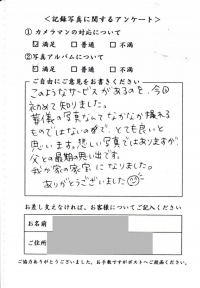 ＜記録写真に関するアンケート＞
①カメラマンの対応について
☑満足 □普通 □不満
②写真アルバムについて
☑満足 □普通 □不満
ご自由にご意見をお書きください
このようなサービスがあるのを、今回
初めて知りました。
葬儀の写真なんてなかなか撮れる
ものではないので、とても良いと
思います。悲しい写真ではありますが、
父との最期の思い出です。
我が家の家宝になりました。
ありがとうございました
お差し支えなければ、お客様についてご記入ください
お名前
ご住所
ご協力ありがとうございました。お手数ですがポストへご投函ください。